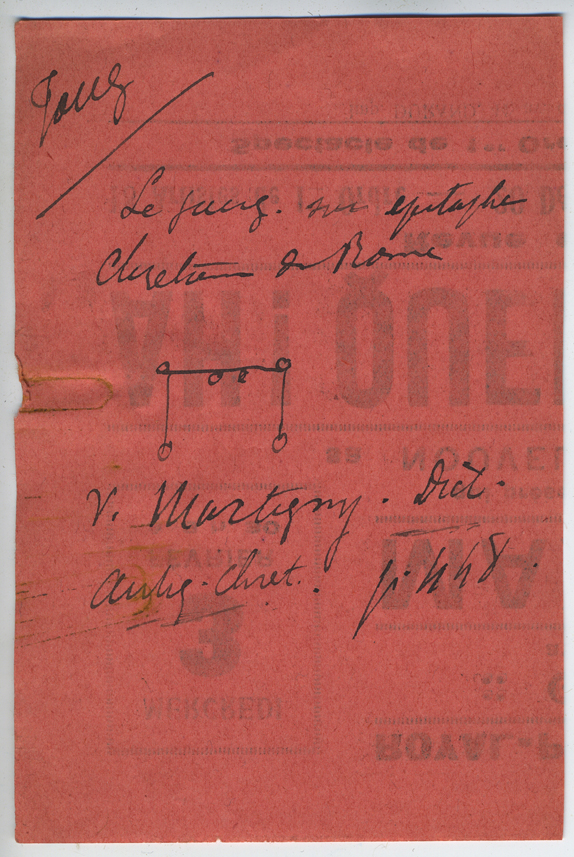 Joug
Le joug. sur épitaphe
Chretienne de Rome
V. Martigny. Dict.
antiq. Chret. p. 448.